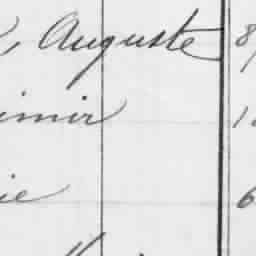 , Auguste 8
imir 1
ie 6